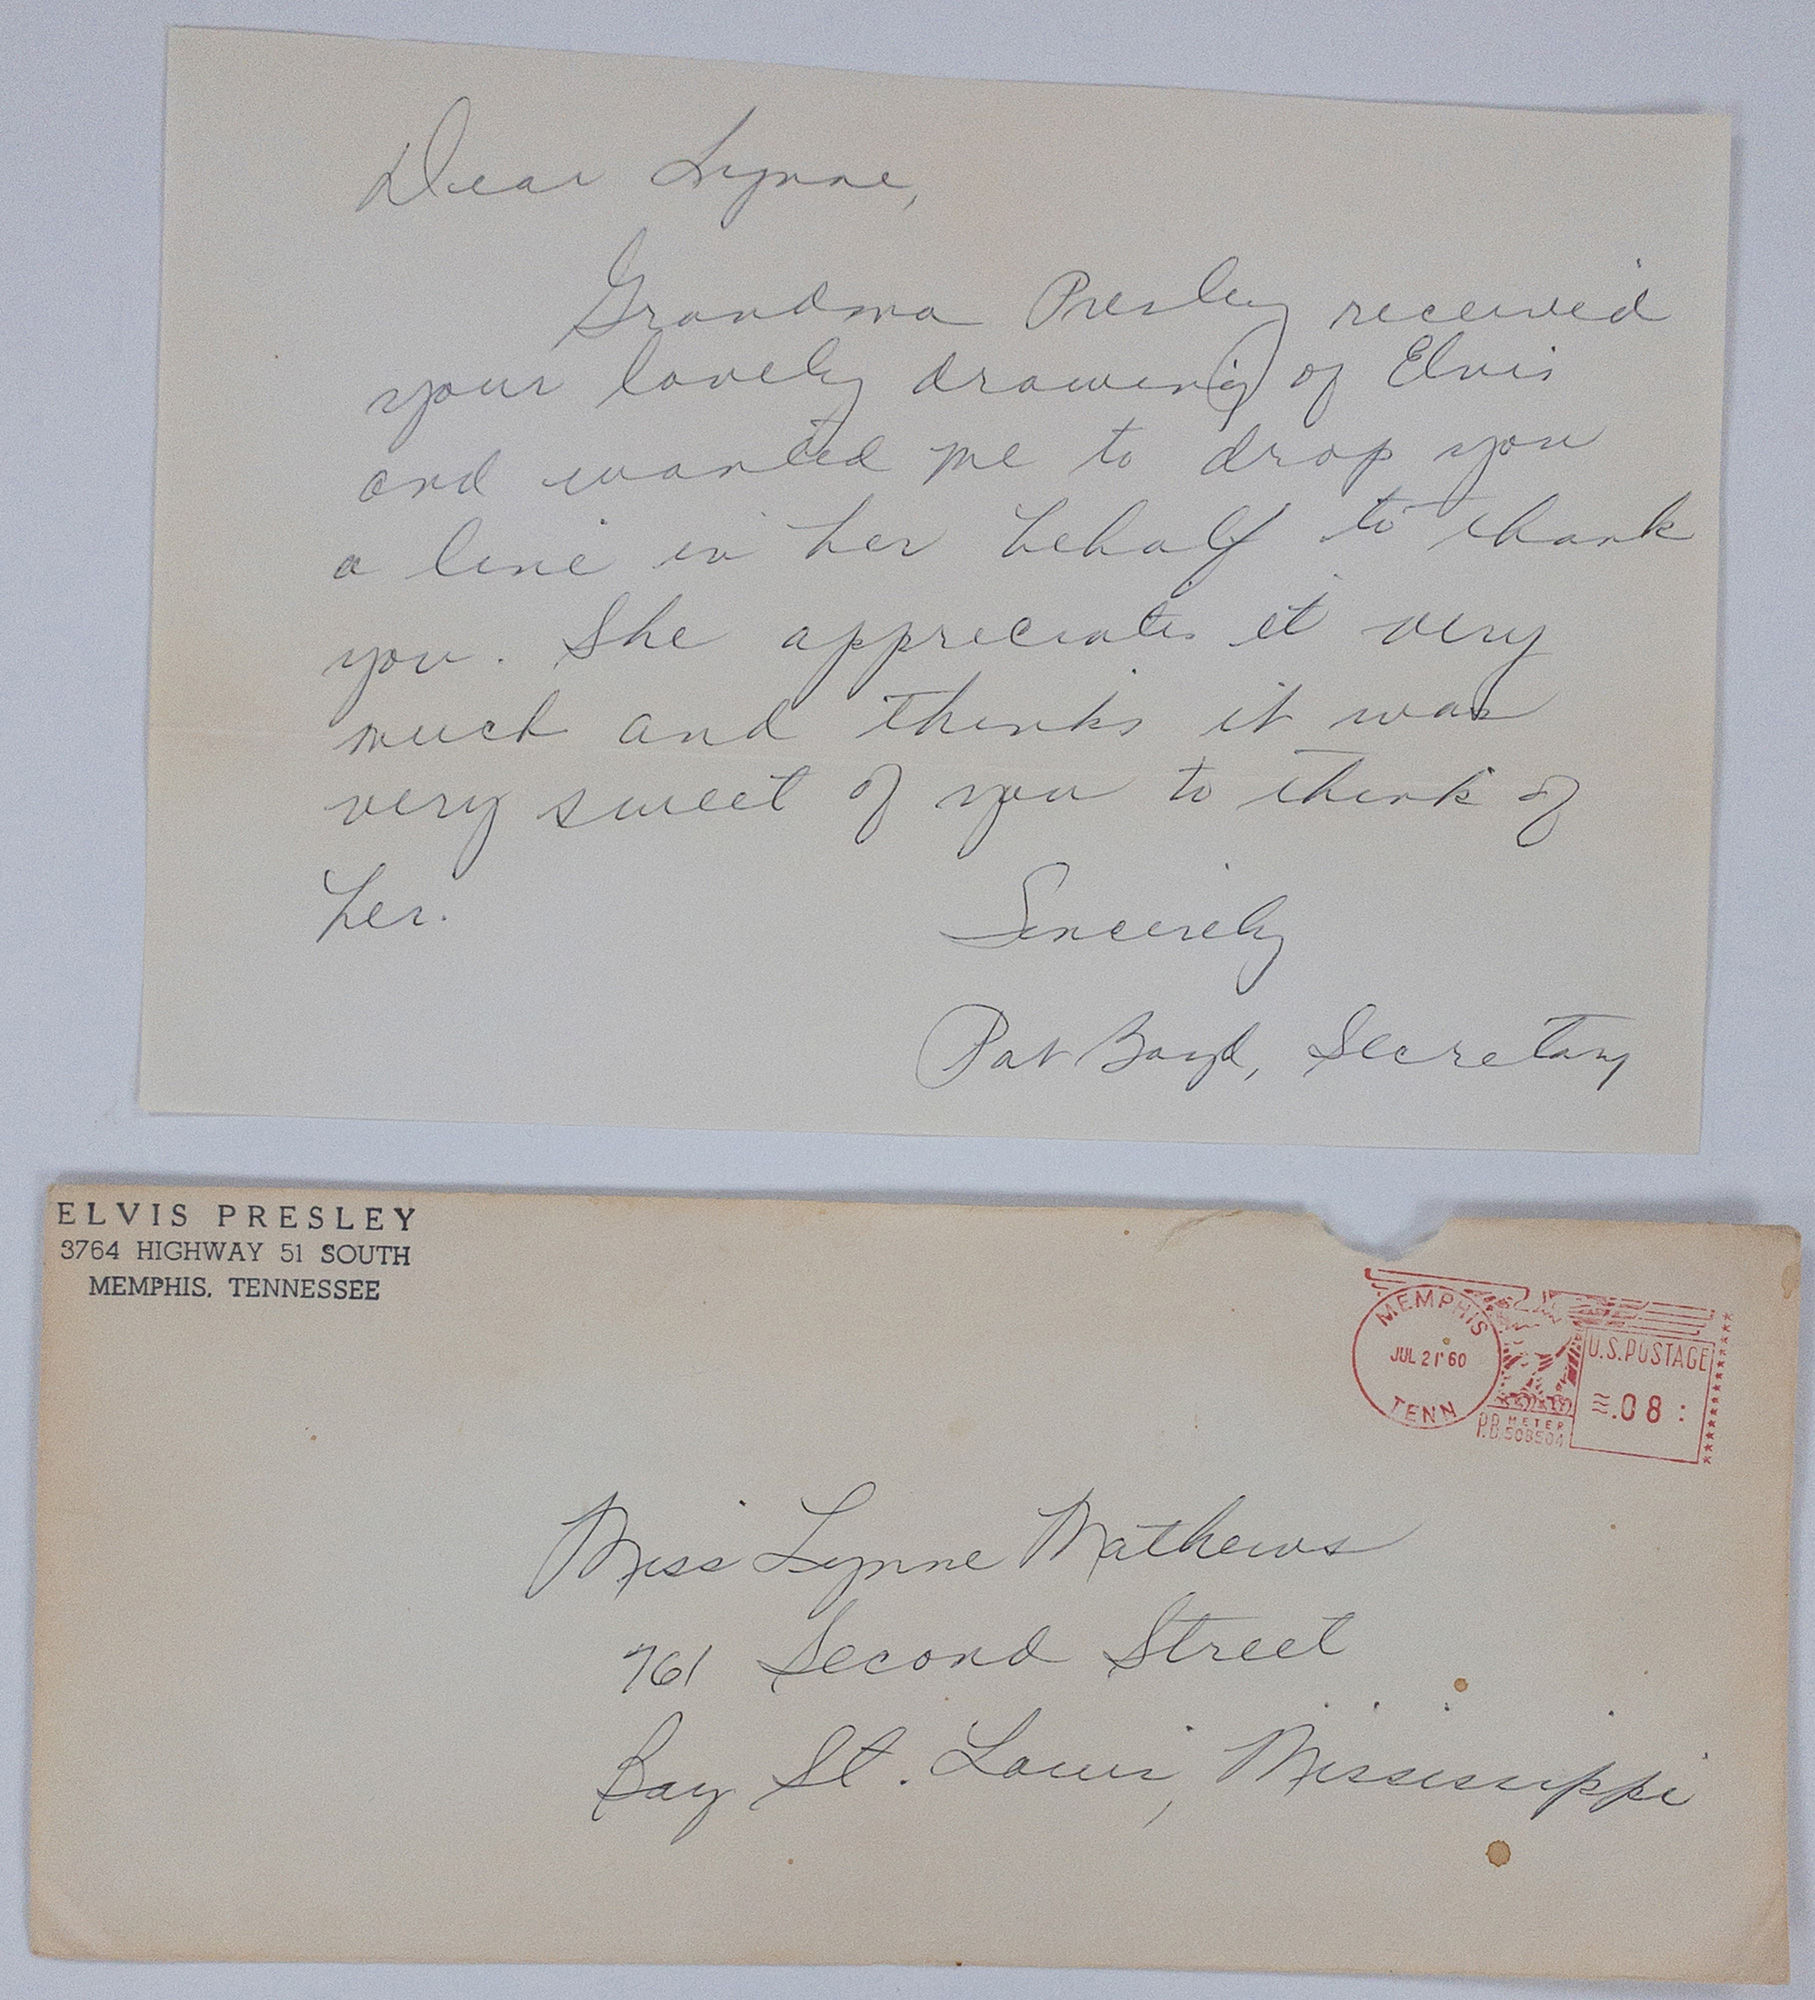 Dear Lynne,
Grandma Presley received
your lovely drawing of Elvis
and wanted me to drop you
a line in her behalf to thank
you. She appreciates it very
much and thinks it was
very sweet of you to think of
her.
Sincerely
Pat Boyd, Secretary
ELVIS PRESLEY
3764 HIGHWAY 51 SOUTH
MEMPHIS, TENNESSEE
MEMPHIS
JUL 21 '60
TENN
U.S. POSTAGE
.08
P.B. METER
Miss Lynne Mathews
761 Second Street
Bay St. Louis, Mississippi